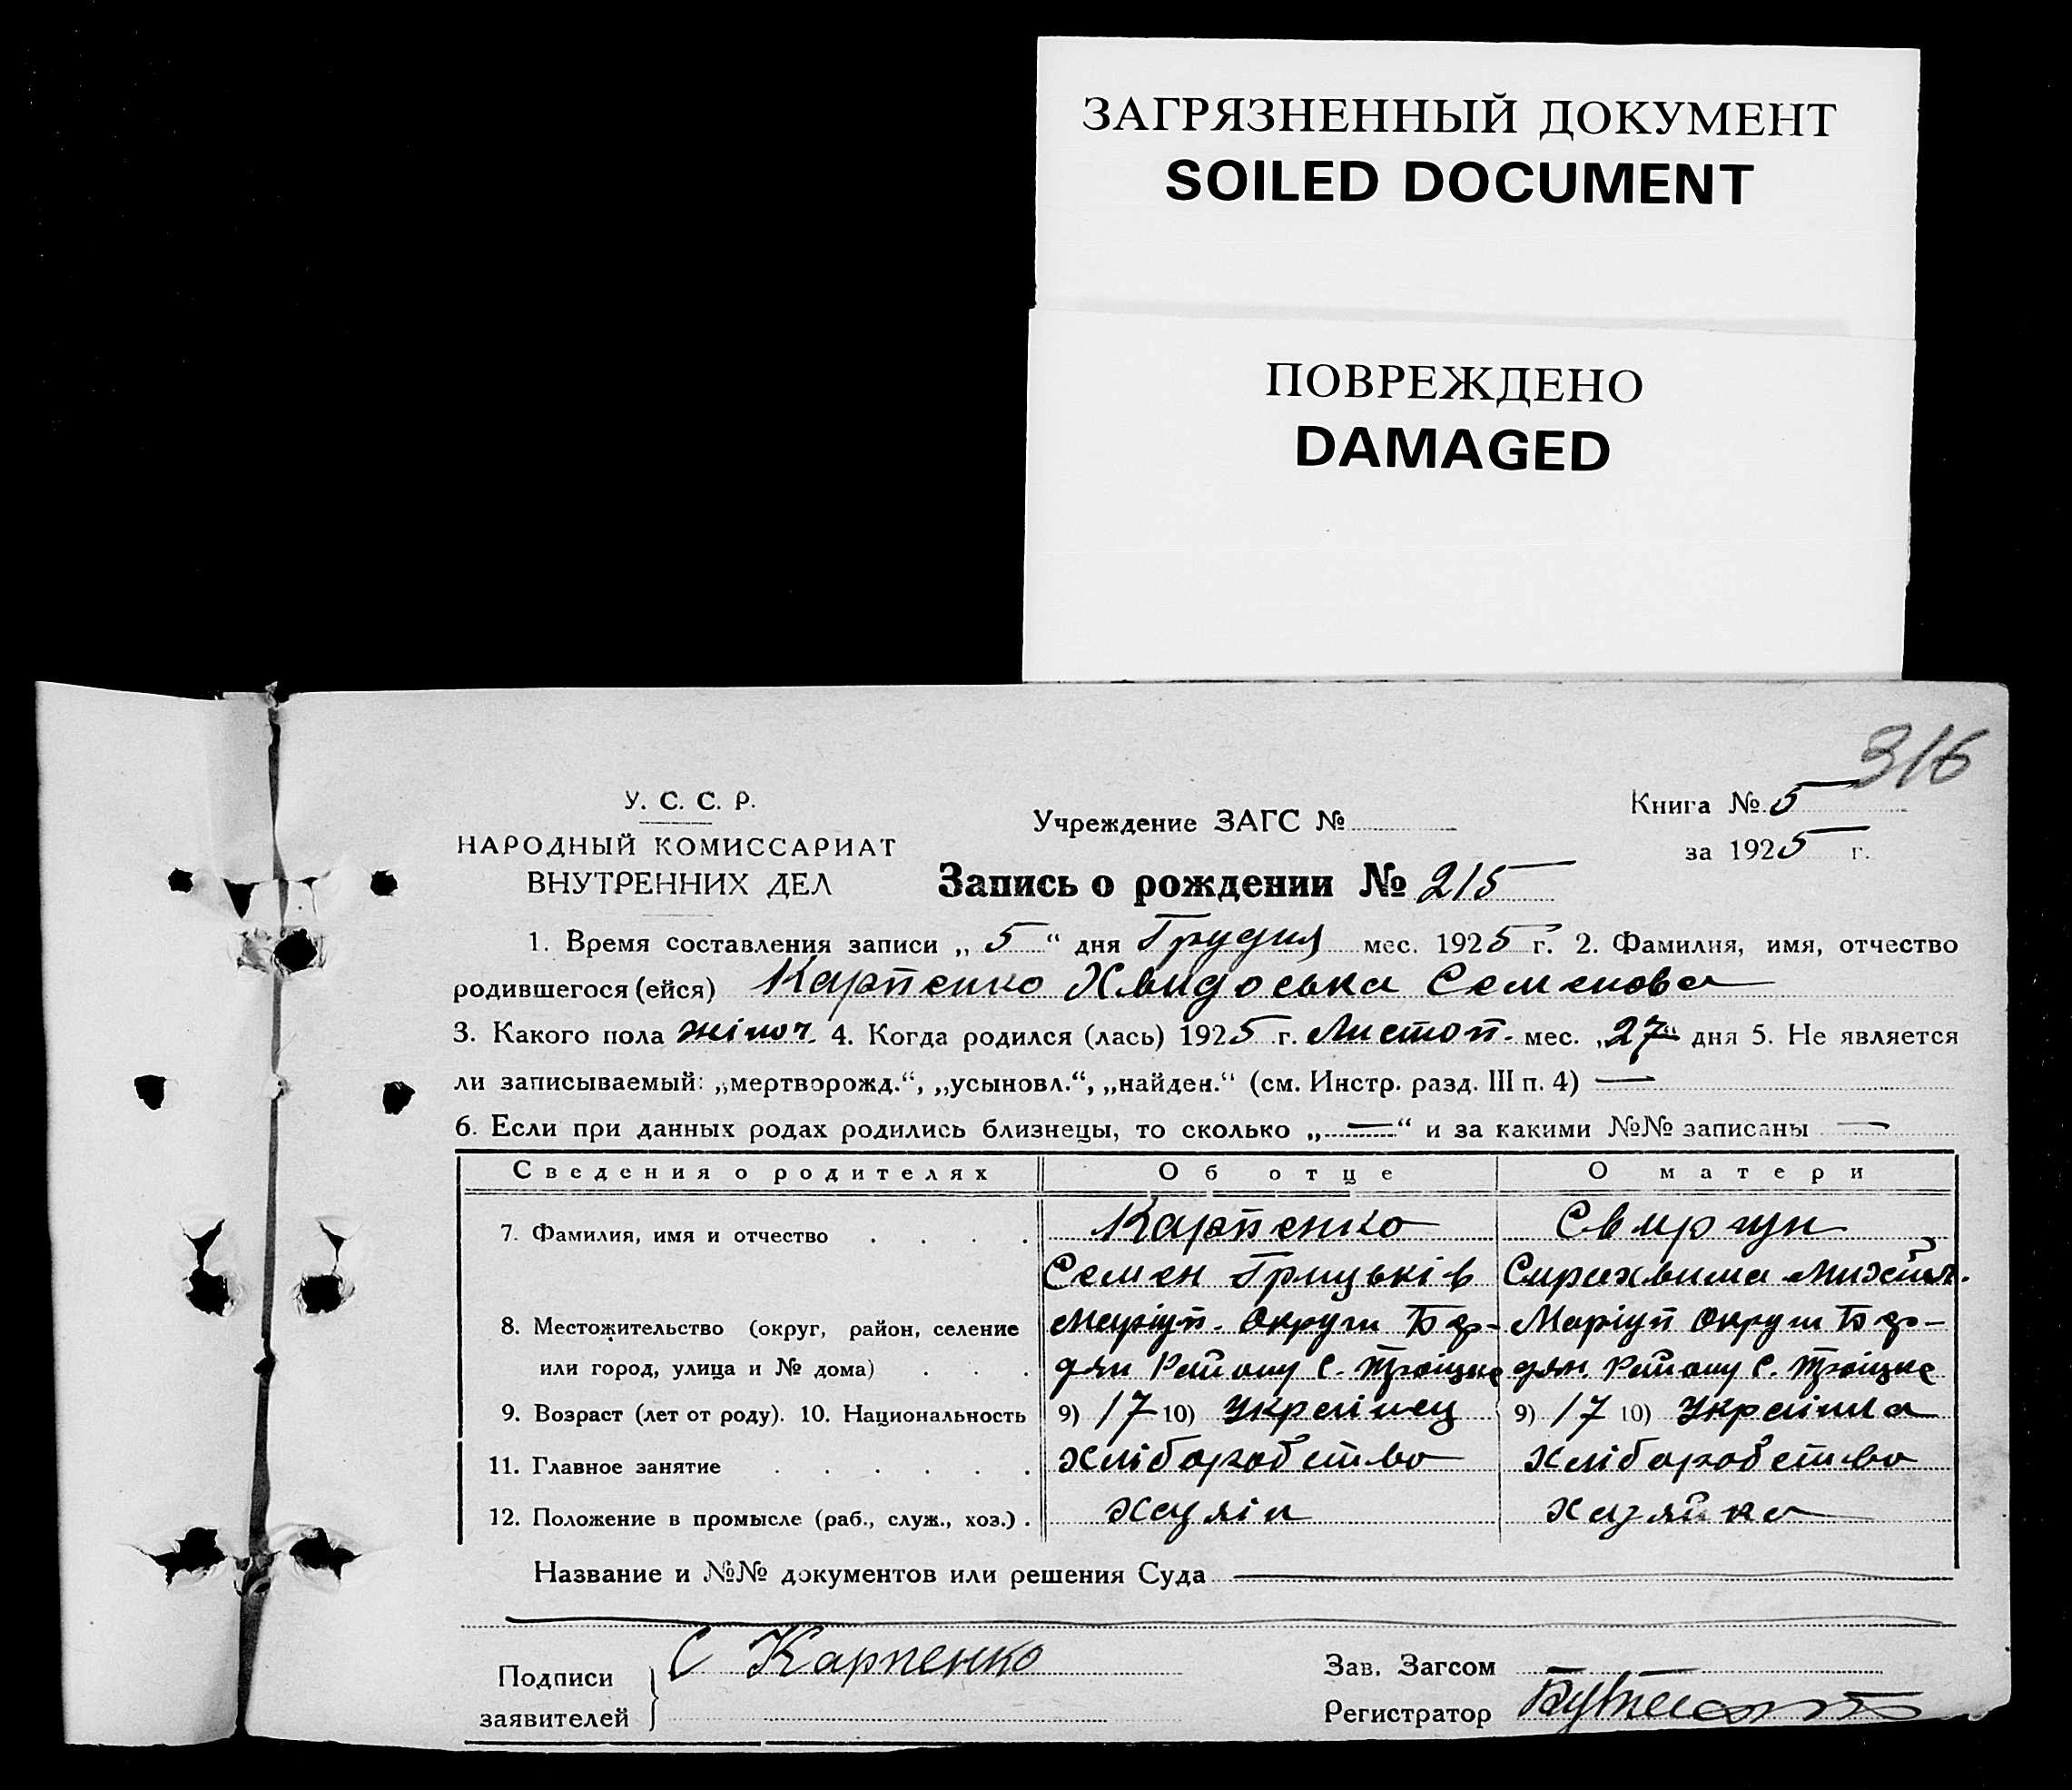 ЗАГРЯЗНЕННЫЙ ДОКУМЕНТ
SOILED DOCUMENT
ПОВРЕЖДЕНО
DAMAGED
316
У. С. С. Р.
НАРОДНЫЙ КОМИССАРИАТ
ВНУТРЕННИХ ДЕЛ
Учреждение ЗАГС №
Книга № 5
за 1925 г.
Запись о рождении № 215
1. Время составления записи „ 5 “ дня Грудня мес. 1925 г. 2. Фамилия, имя, отчество
родившегося (ейся) Карпенко Хвидоська Семенова
3. Какого пола жіноч. 4. Когда родился (лась) 1925 г. Листоп. мес. „27“ дня 5. Не является
ли записываемый: „мертворожд.“, „усыновл.“, „найден.“ (см. Инстр. разд. III п. 4) —
6. Если при данных родах родились близнецы, то сколько „—“ и за какими №№ записаны —
Сведения о родителях Об отце О матери
7. Фамилия, имя и отчество . . . . Карпенко
Семен Грицьків
8. Местожительство (округ, район, селение Маріуп. Округи Бер- Маріуп Округи Бер-
или город, улица и № дома) . . . дян Району С. Троіцке дян. Району С. Троіцке
9. Возраст (лет от роду). 10. Национальность 9) 17 10) Украінец 9) 17 10) Украінка
11. Главное занятие . . . . . . Хліборобство Хліборобство
12. Положение в промысле (раб., служ., хоз.) . Хазяін Хазяйка
Название и №№ документов или решения Суда
Подписи
заявителей
С Карпенко
Зав. Загсом
Регистратор